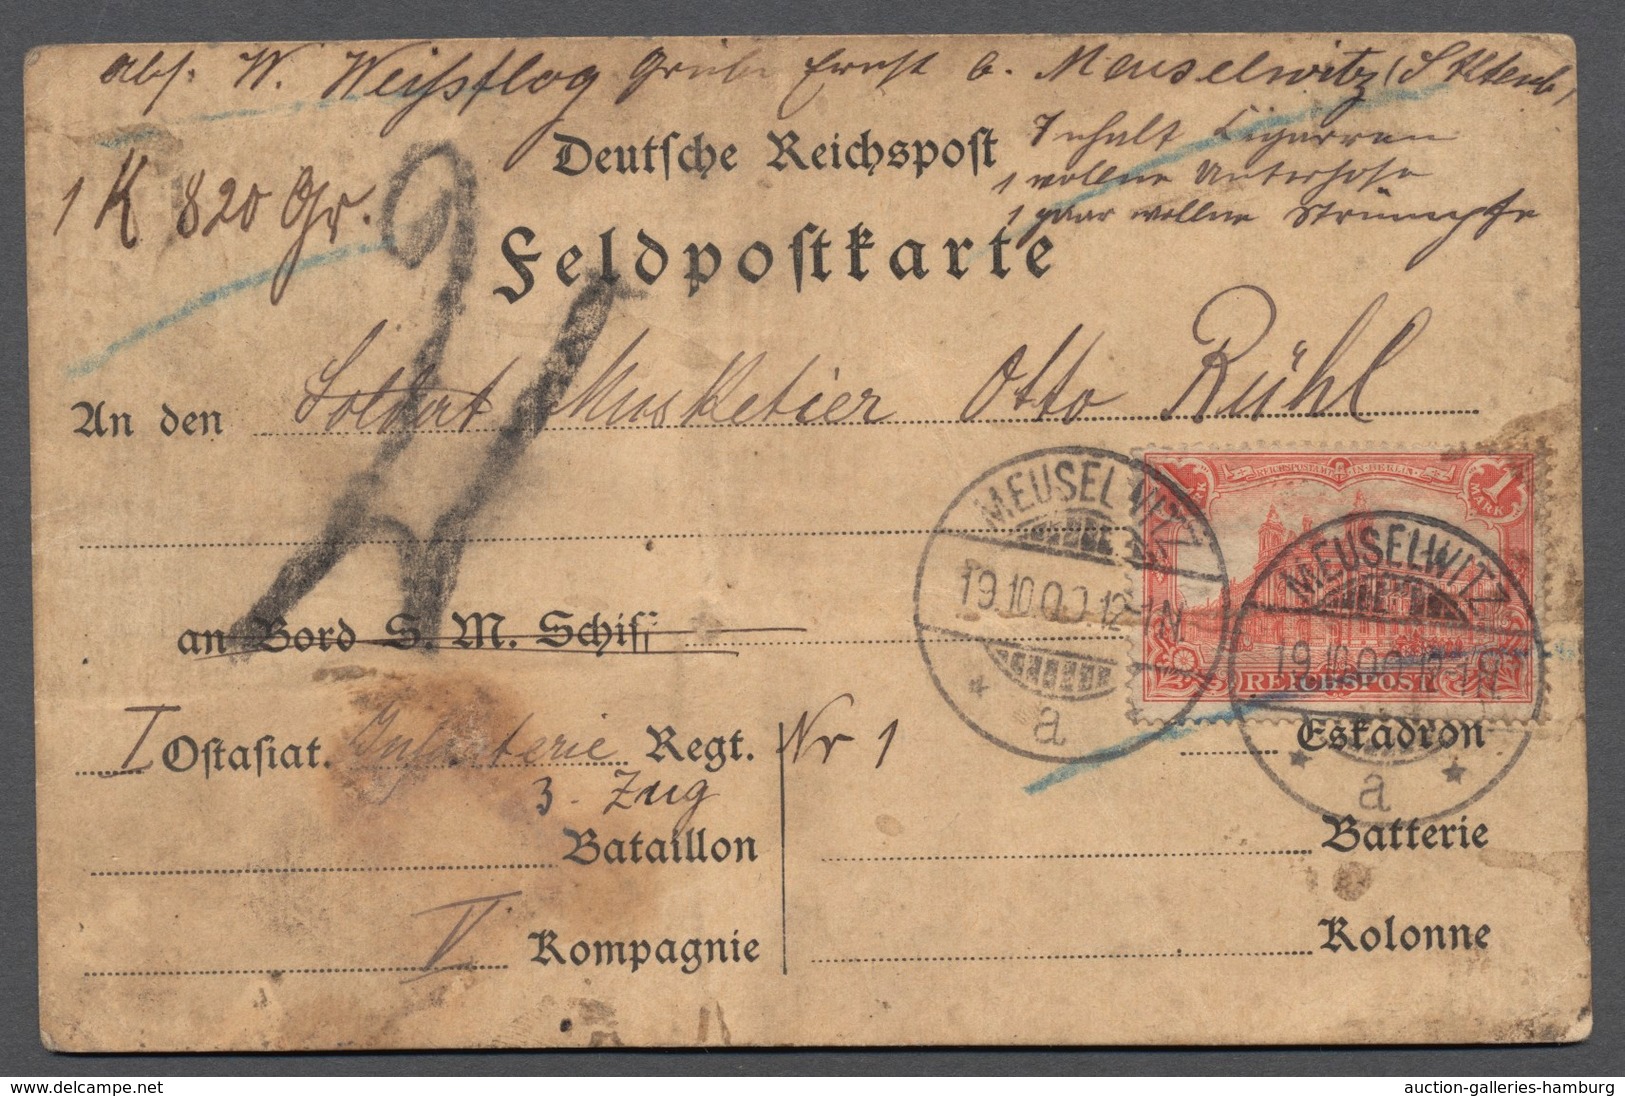 Abs. W. Weißflog Grube Ernst b. Meuselwitz (S Altenb,
Deutsche Reichspost
Inhalt Cigarren
1 K 820 Gr.
1 wollne Unterhose
1 paar wollne Strümpfe
Feldpostkarte
An den Soldat Musketier Otto Rühl
REICHSPOSTAMT IN BERLIN
1 MARK
REICHSPOST
MEUSELWITZ
19.10.00.12-1N
a
MEUSELWITZ
19.10.00.12-1N
a
an Bord S. M. Schiff
I Ostasiat. Infanterie Regt. Nr 1
Eskadron
3. Zug
Bataillon
Batterie
V Kompagnie
Kolonne
www.delcampe.net
auction-galleries-hamburg